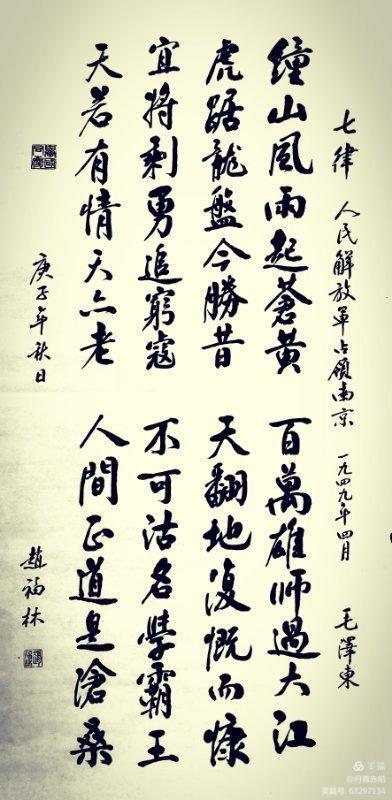 七律 人民解放軍占領南京 一九四九年四月 毛澤東
鐘山風雨起蒼黄 百萬雄師過大江
虎踞龍盤今勝昔 天翻地復慨而慷
宜將剩勇追窮寇 不可沽名學霸王
天若有情天亦老 人間正道是滄桑
庚子年秋日 趙福林
美篇
@丹青赤焰
美篇号: 63297134